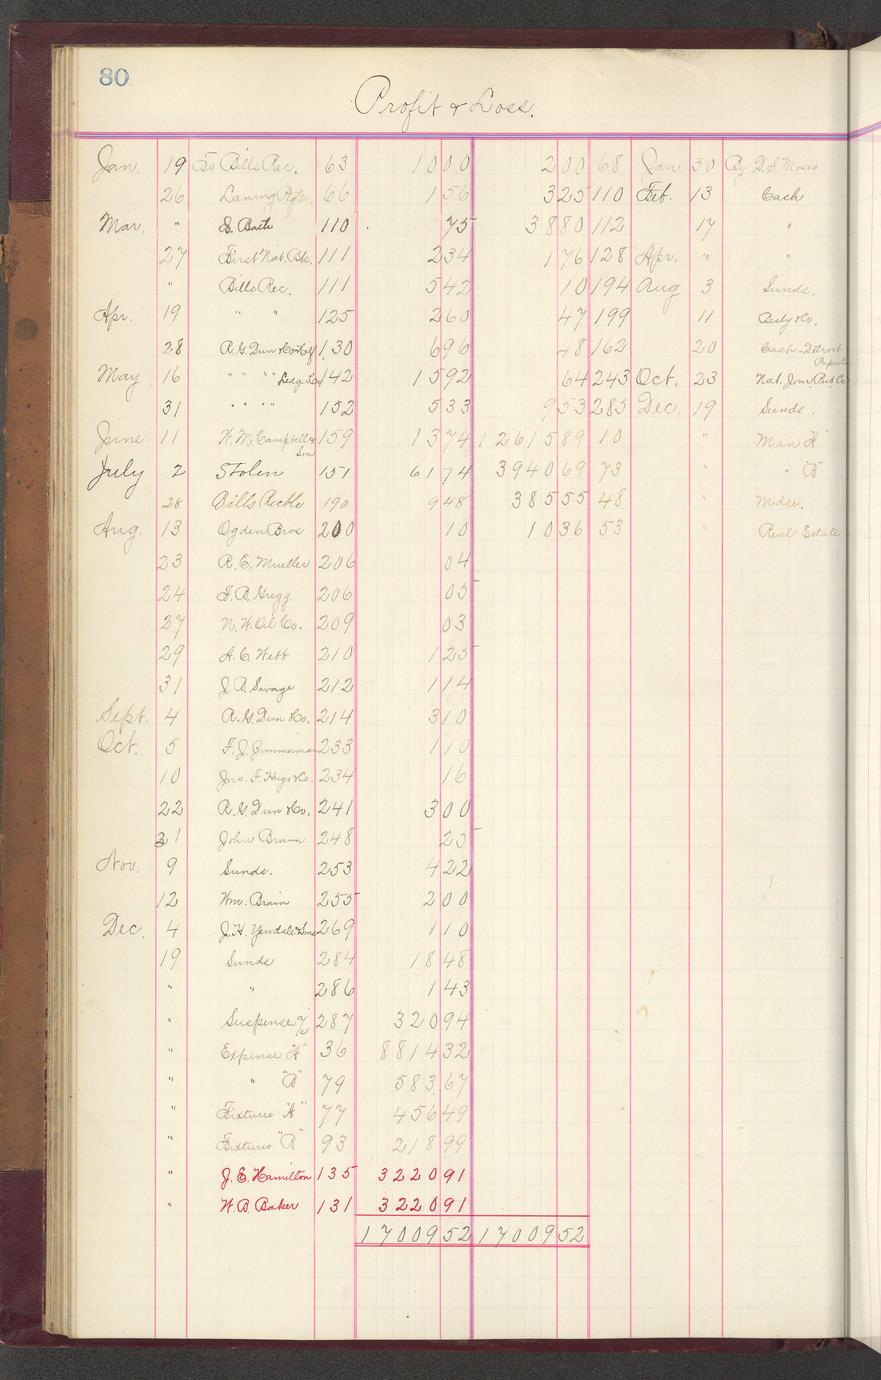 80
Profit & Loss.
Jan. 19 To Bills Rec. 63 10 00 2 00 68 Jan. 30 By D. S. Moses
26 Lansing 66 1 56 3 25 110 Feb. 13 Cash
Mar. " S. Barth 110 75 38 80 112 17 "
27 First Nat. Bk. 111 2 34 1 76 128 Apr. " "
" Bills Rec. 111 5 42 10 194 Aug 3 Sunds.
Apr. 19 " " 125 2 60 47 199 11 & Co.
28 R. G. Dun & Co 130 6 96 48 162 20 Cash - Detroit
May 16 " " " " Ledge 142 15 92 64 243 Oct. 23 Nat. Jour Pub Co
31 " " " " 152 5 33 9 53 285 Dec. 19 Sunds.
June 11 W. M. Campbell & Son 159 13 74 12615 89 10 " Man "A"
July 2 Stolen 151 61 74 3940 69 73 " " "B"
28 Bills Recble 190 9 48 385 55 48 " Mdse.
Aug. 13 Ogden Bros 200 10 10 36 53 " Real Estate
23 R. E. Mueller 206 04
24 Gregg. 206 05
27 N. W. Oil Co. 209 03
29 A. C. Webb 210 1 25
31 J. B. Savage 212 1 14
Sept. 4 R. G. Dun & Co. 214 3 10
Oct. 5 F. J. Zimmerman 233 1 10
10 Jno. F. & Co. 234 16
22 R. G. Dun & Co. 241 3 00
31 John Braun 248 25
Nov. 9 Sunds. 253 4 22
12 Wm. Brain 255 2 00
Dec. 4 J. H. Yewdale & Sons 269 1 10
19 Sunds 284 18 48
" " 286 1 43
" Suspense a/c 287 320 94
" Expense "A" 36 8814 32
" " "B" 79 583 67
" Fixtures "A" 77 456 49
" Fixtures "B" 93 218 99
" J. E. Hamilton 135 3220 91
" W. B. Baker 131 3220 91
17009 52 17009 52